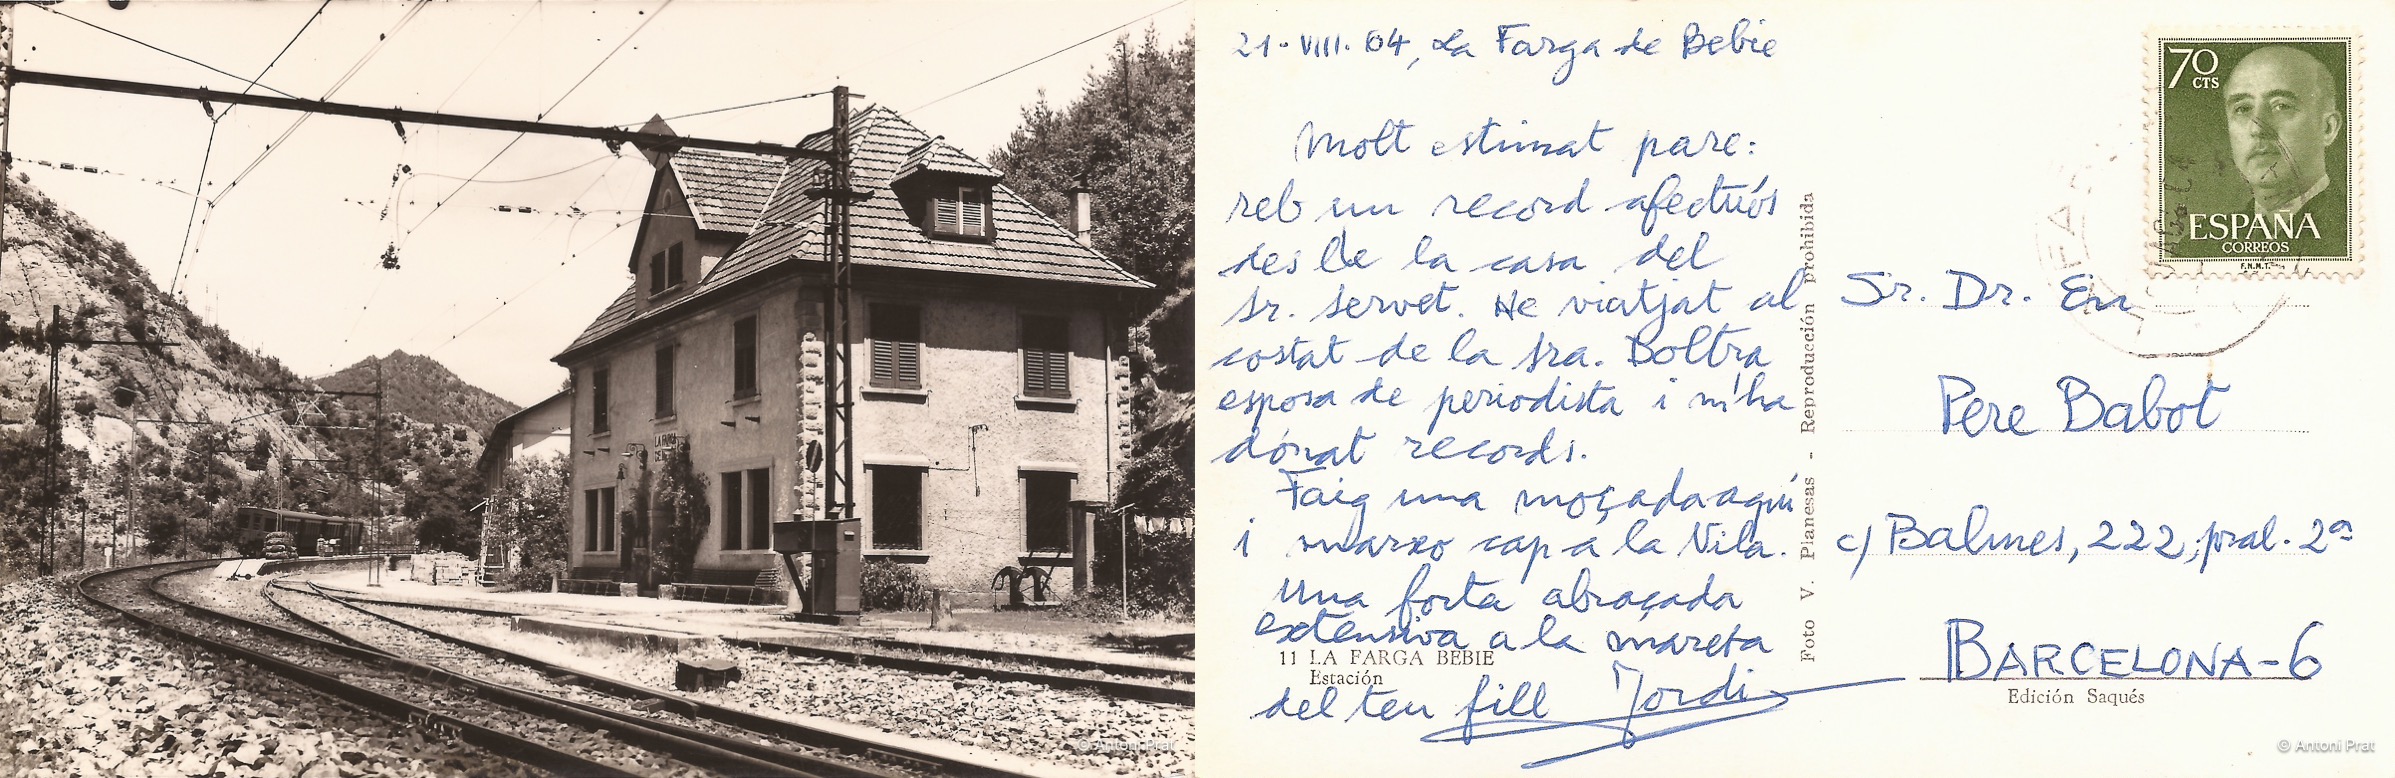 LA FARGA
© Antoni Prat
21-VIII-64, La Farga de Bebie
Molt estimat pare:
reb un record afectuós
des de la casa del
sr. servet. He viatjat al
costat de la sra. Boltra
esposa de periodista i m'ha
dónat records.
Faig una moçada aquí
i marxo cap a la Vila.
Una forta abraçada
extensiva a la mareta
del teu fill Jordi
11 LA FARGA BEBIE
Estación
Foto V. Planesas - Reproducción prohibida
70
CTS
ESPAÑA
CORREOS
F.N.M.T.
Sr. Dr. En
Pere Babot
c/ Balmes, 222, pral. 2ª
BARCELONA-6
Edición Saqués
© Antoni Prat